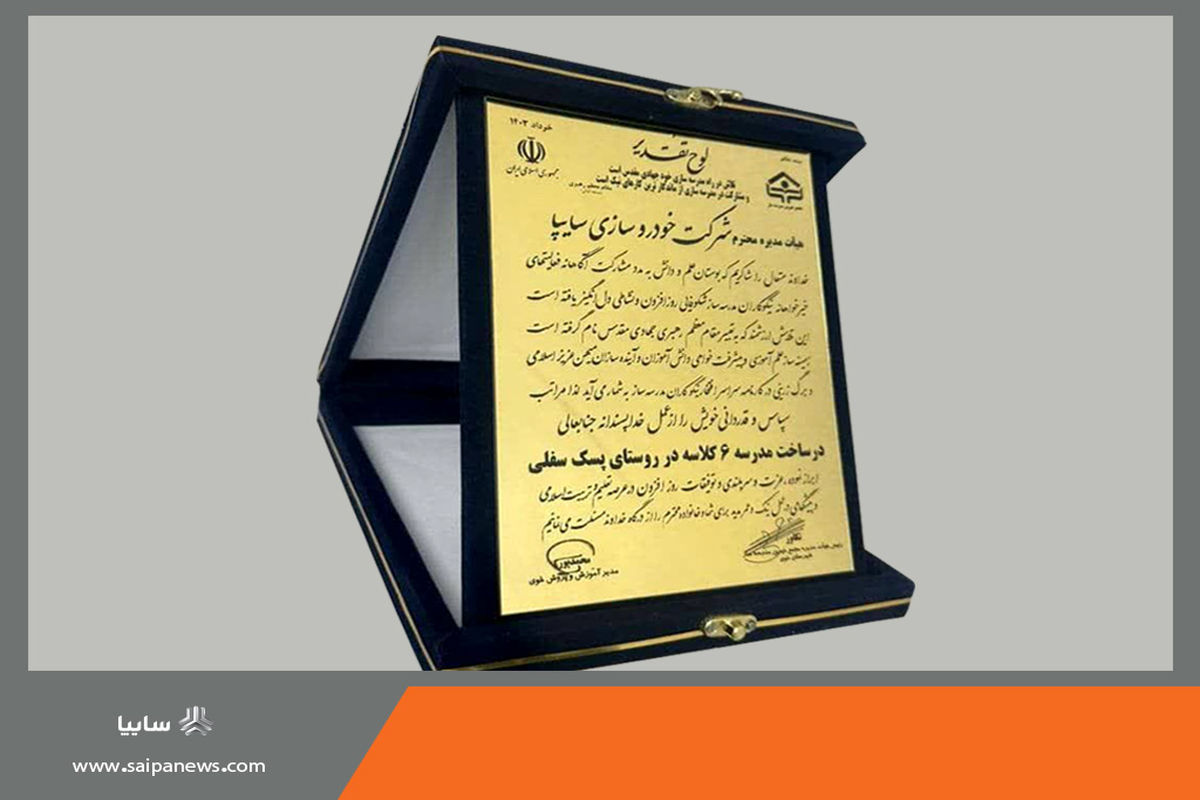 خرداد ۱۴۰۳
لوح تقدیر
جمهوری اسلامی ایران
تلاش در راه مدرسه سازی خود جهادی مقدس است
و مشارکت در مدرسه سازی از ماندگار ترین کارهای نیک است
هیأت مدیره محترم شرکت خودروسازی سایپا
خداوند متعال را شاکریم که بوستان علم و دانش به مدد مشارکت آگاهانه فعالیتهای
خیرخواهانه نیکوکاران مدرسه ساز شکوفایی روزافزون و نشاطی دل انگیز یافته است
این تلاش ارزشمند که به تعبیر مقام معظم رهبری جهادی مقدس نام گرفته است
زمینه ساز علم آموزی و پیشرفت خواهی دانش آموزان و آینده سازان میهن عزیز اسلامی
و برگ زرینی در کارنامه سراسر افتخار نیکوکاران مدرسه ساز به شمار می آید لذا مراتب
سپاس و قدردانی خویش را از عمل خداپسندانه جنابعالی
در ساخت مدرسه ۶ کلاسه در روستای پسک سفلی
ابراز نموده، عزت و سربلندی و توفیقات روز افزون در عرصه تعلیم و تربیت اسلامی
و همیشگی در عمل نیک و عمر مدید برای شما و خانواده محترم را از درگاه خداوند مسئلت می نمائیم
مدیر آموزش و پرورش خوی
سایپا
www.saipanews.com